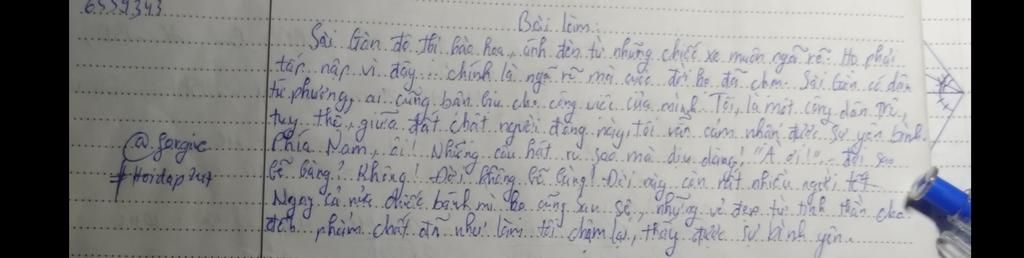 6459343
Bài làm:
Sài Gòn đô thị hào hoa, ánh đèn từ những chiếc xe muôn ngã rẽ. Họ phải
tấp nập vì đây... chính là ngã rẽ mà cuộc đời họ đã chọn. Sài Gòn có dân
tứ phương, ai cũng bận bịu cho công việc của mình. Tôi, là một công dân trẻ,
tuy thế, giữa đất chật người đông này, tôi vẫn cảm nhận được sự yên bình.
Phía Nam, ôi! Những câu hát ru sao mà dịu dàng! "À ơi!" - đời sao
bẽ bàng? Không! Đời không bẽ bàng! Đời này còn rất nhiều người tốt.
Ngay cả nửa chiếc bánh mì họ cũng san sẻ, những vẻ đẹp từ tinh thần cho
đến phẩm chất đã như làm tôi chậm lại, thấy được sự bình yên.
@gorgive
#Hoidap247